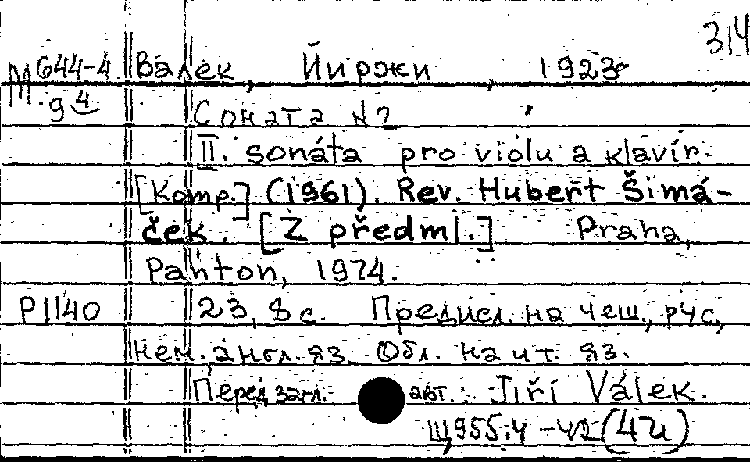 314
М 644-4 Валек, Йиржи, 1923-
9 4
Соната №2
II. sonáta pro violu a klavír.
[Komp.] (1961). Rev. Hubert Šimá-
ček. [Z předml.] Praha,
Panton, 1974.
Р1140 23, 8 с. Предисл. на чеш., рус,
нем. англ. яз. Обл. на ит. яз.
Перед загл. авт.: Jiří Válek.
Щ955.4-42(4и)